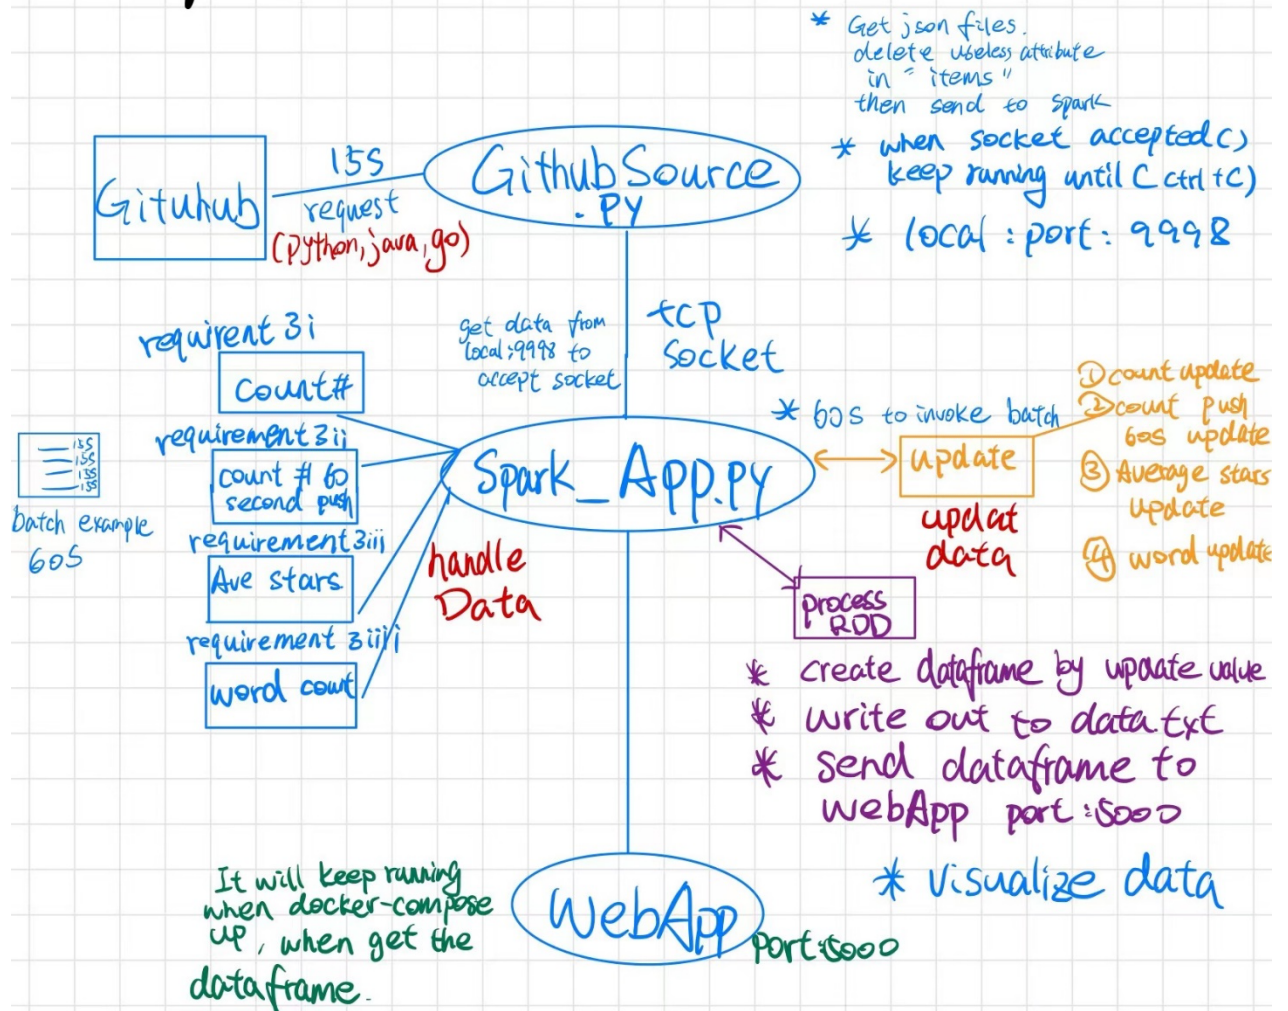 * Get json files.
delete useless attribute
in "items"
then send to spark
* when socket accepted()
keep running until C ctrl+C)
* local : port : 9998
Gituhub
15s
request
(python, java, go)
GithubSource
.py
requirent 3i
count#
requirement 3ii
count # 60
second push
requirement 3iii
Ave stars
requirement 3iiii
word count
15s
15s
15s
15s
batch example
60s
get data from
local:9998 to
accept socket
tcp
socket
* 60s to invoke batch
Spark_App.py
handle
Data
update
updat
data
① count update
② count push
60s update
③ Average stars
update
④ word update
process
RDD
* create dataframe by update value
* write out to data.txt
* send dataframe to
webApp port:5000
* visualize data
It will keep running
when docker-compose
up, when get the
dataframe.
WebApp
port:5000